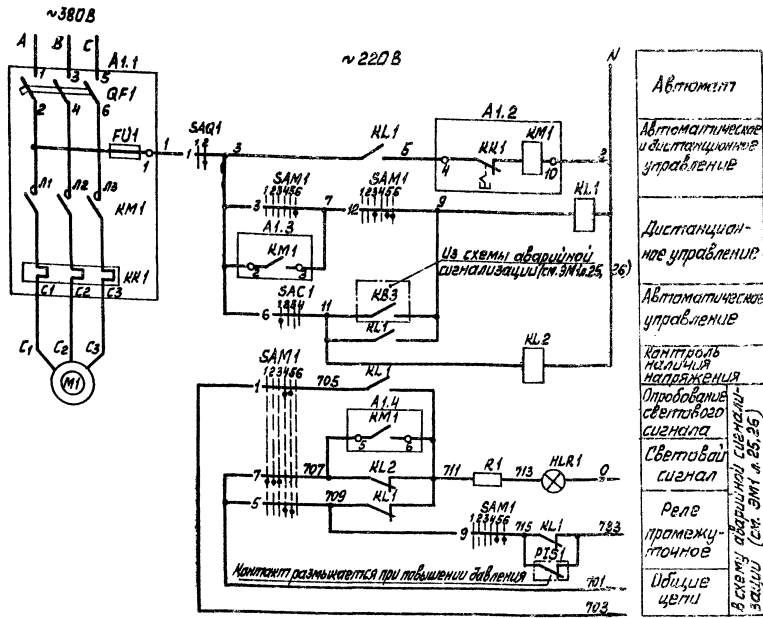 ~380В
A B C
A1.1
1 3 5
QF1
2 4 6
FU1
1
1
Л1 Л2 Л3
КМ1
КК1
C1 C2 C3
C1 C2 C3
М1
~220В
N
SAQ1
1 2
1
3
KL1
5
A1.2
4
КК1
КМ1
10
2
SAM1
123456
3
7
SAM1
123456
12
9
KL1
A1.3
КМ1
2 3
Из схемы аварийной
сигнализации (см. ЭМ1 л.25,26)
SAC1
1234
6
11
КВ3
KL1
KL2
SAM1
123456
1
705
KL1
A1.4
КМ1
5 6
7
707
KL2
711
R1
713
HLR1
0
5
709
KL1
9
SAM1
123456
715
KL1
733
PIS1
Контакт размыкается при повышении давления
701
703
Автомат
Автоматическое
и дистанционное
управление
Дистанцион-
ное управление
Автоматическое
управление
Контроль
наличия
напряжения
Опробование
светового
сигнала
Световой
сигнал
Реле
промежу-
точное
Общие
цепи
В схему аварийной сигнали-
зации (см. ЭМ1 л.25,26)